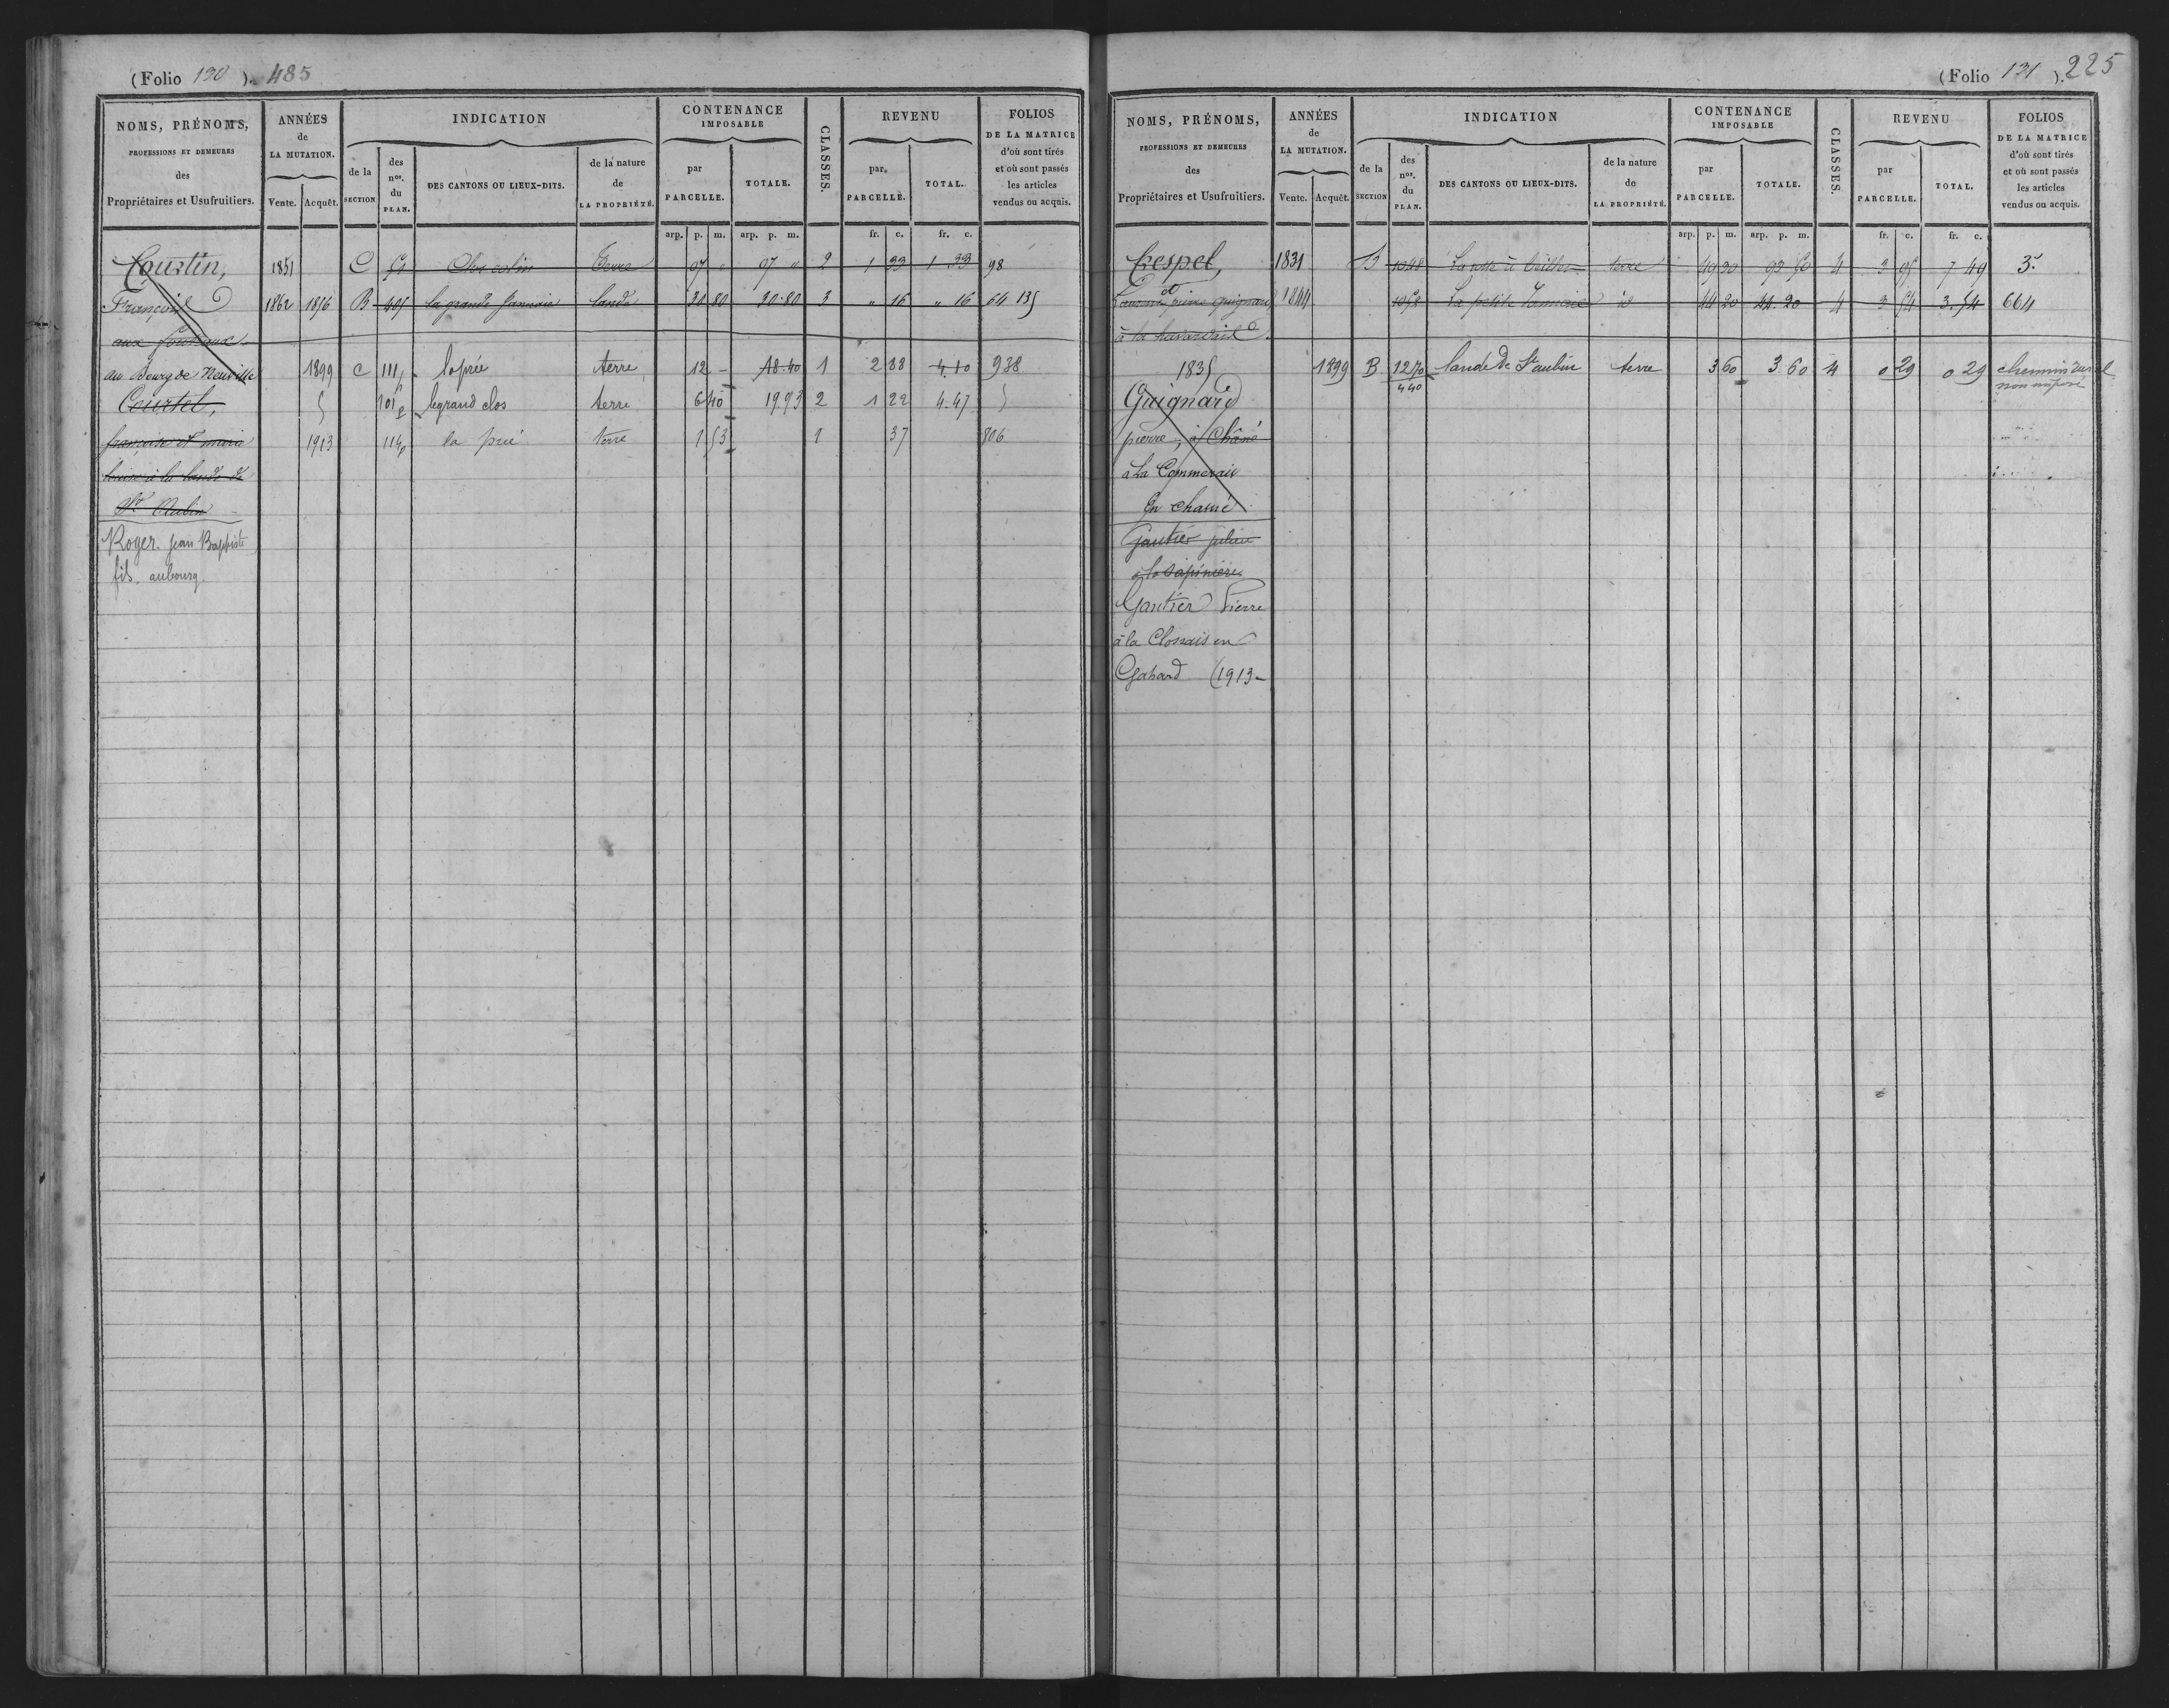 (Folio 130 ). 485
NOMS, PRÉNOMS,
PROFESSIONS ET DEMEURES
des
Propriétaires et Usufruitiers.
ANNÉES
de
LA MUTATION.
Vente. Acquêt.
INDICATION
de la
SECTION
des
nos.
du
PLAN.
DES CANTONS OU LIEUX-DITS.
de la nature
de
LA PROPRIÉTÉ.
CONTENANCE
IMPOSABLE
par
PARCELLE.
TOTALE.
CLASSES.
REVENU
par
PARCELLE.
TOTAL.
FOLIOS
DE LA MATRICE
d'où sont tirés
et où sont passés
les articles
vendus ou acquis.
arp. p. m. arp. p. m. fr. c. fr. c.
Courtin, 1851 C Clos colin Terre 97 " 97 " 2 1 33 1 33 98
François 1862 1856 B 405 la grande lande 30 80 30.80 3 " 16 " 16 64 135
aux
au Bourg de Neuville 1899 C 111 terre 12 - 18.40 1 2 88 4.10 938
Courtel, 101 le grand clos terre 6 40 19.93 2 1 22 4.47
françoise et marie 1913 114p la pré terre 1 53 1 37 806
à la lande de
St Aubin
Roger. Jean Baptiste
fils. au bourg.
(Folio 131 ). 225
NOMS, PRÉNOMS,
PROFESSIONS ET DEMEURES
des
Propriétaires et Usufruitiers.
ANNÉES
de
LA MUTATION.
Vente. Acquêt.
INDICATION
de la
SECTION
des
nos.
du
PLAN.
DES CANTONS OU LIEUX-DITS.
de la nature
de
LA PROPRIÉTÉ.
CONTENANCE
IMPOSABLE
par
PARCELLE.
TOTALE.
CLASSES.
REVENU
par
PARCELLE.
TOTAL.
FOLIOS
DE LA MATRICE
d'où sont tirés
et où sont passés
les articles
vendus ou acquis.
arp. p. m. arp. p. m. fr. c. fr. c.
Crespel, 1831 B 1048 terre 49 30 93 50 4 3 95 7 49 3.
et
pierre guignard 1844 1058 La petite id 44 20 44.20 4 3 54 3.54 664
à la
1835 1899 B 1270 lande de St aubin terre 3 60 3 60 4 0 29 0 29 chemin rural
440 non imposé
Guignard
pierre, à Chasné
à la Commerais
en chasné
Gautier julien
à la sapinière
Gautier Pierre
à la Clossais en
Gahard (1913-